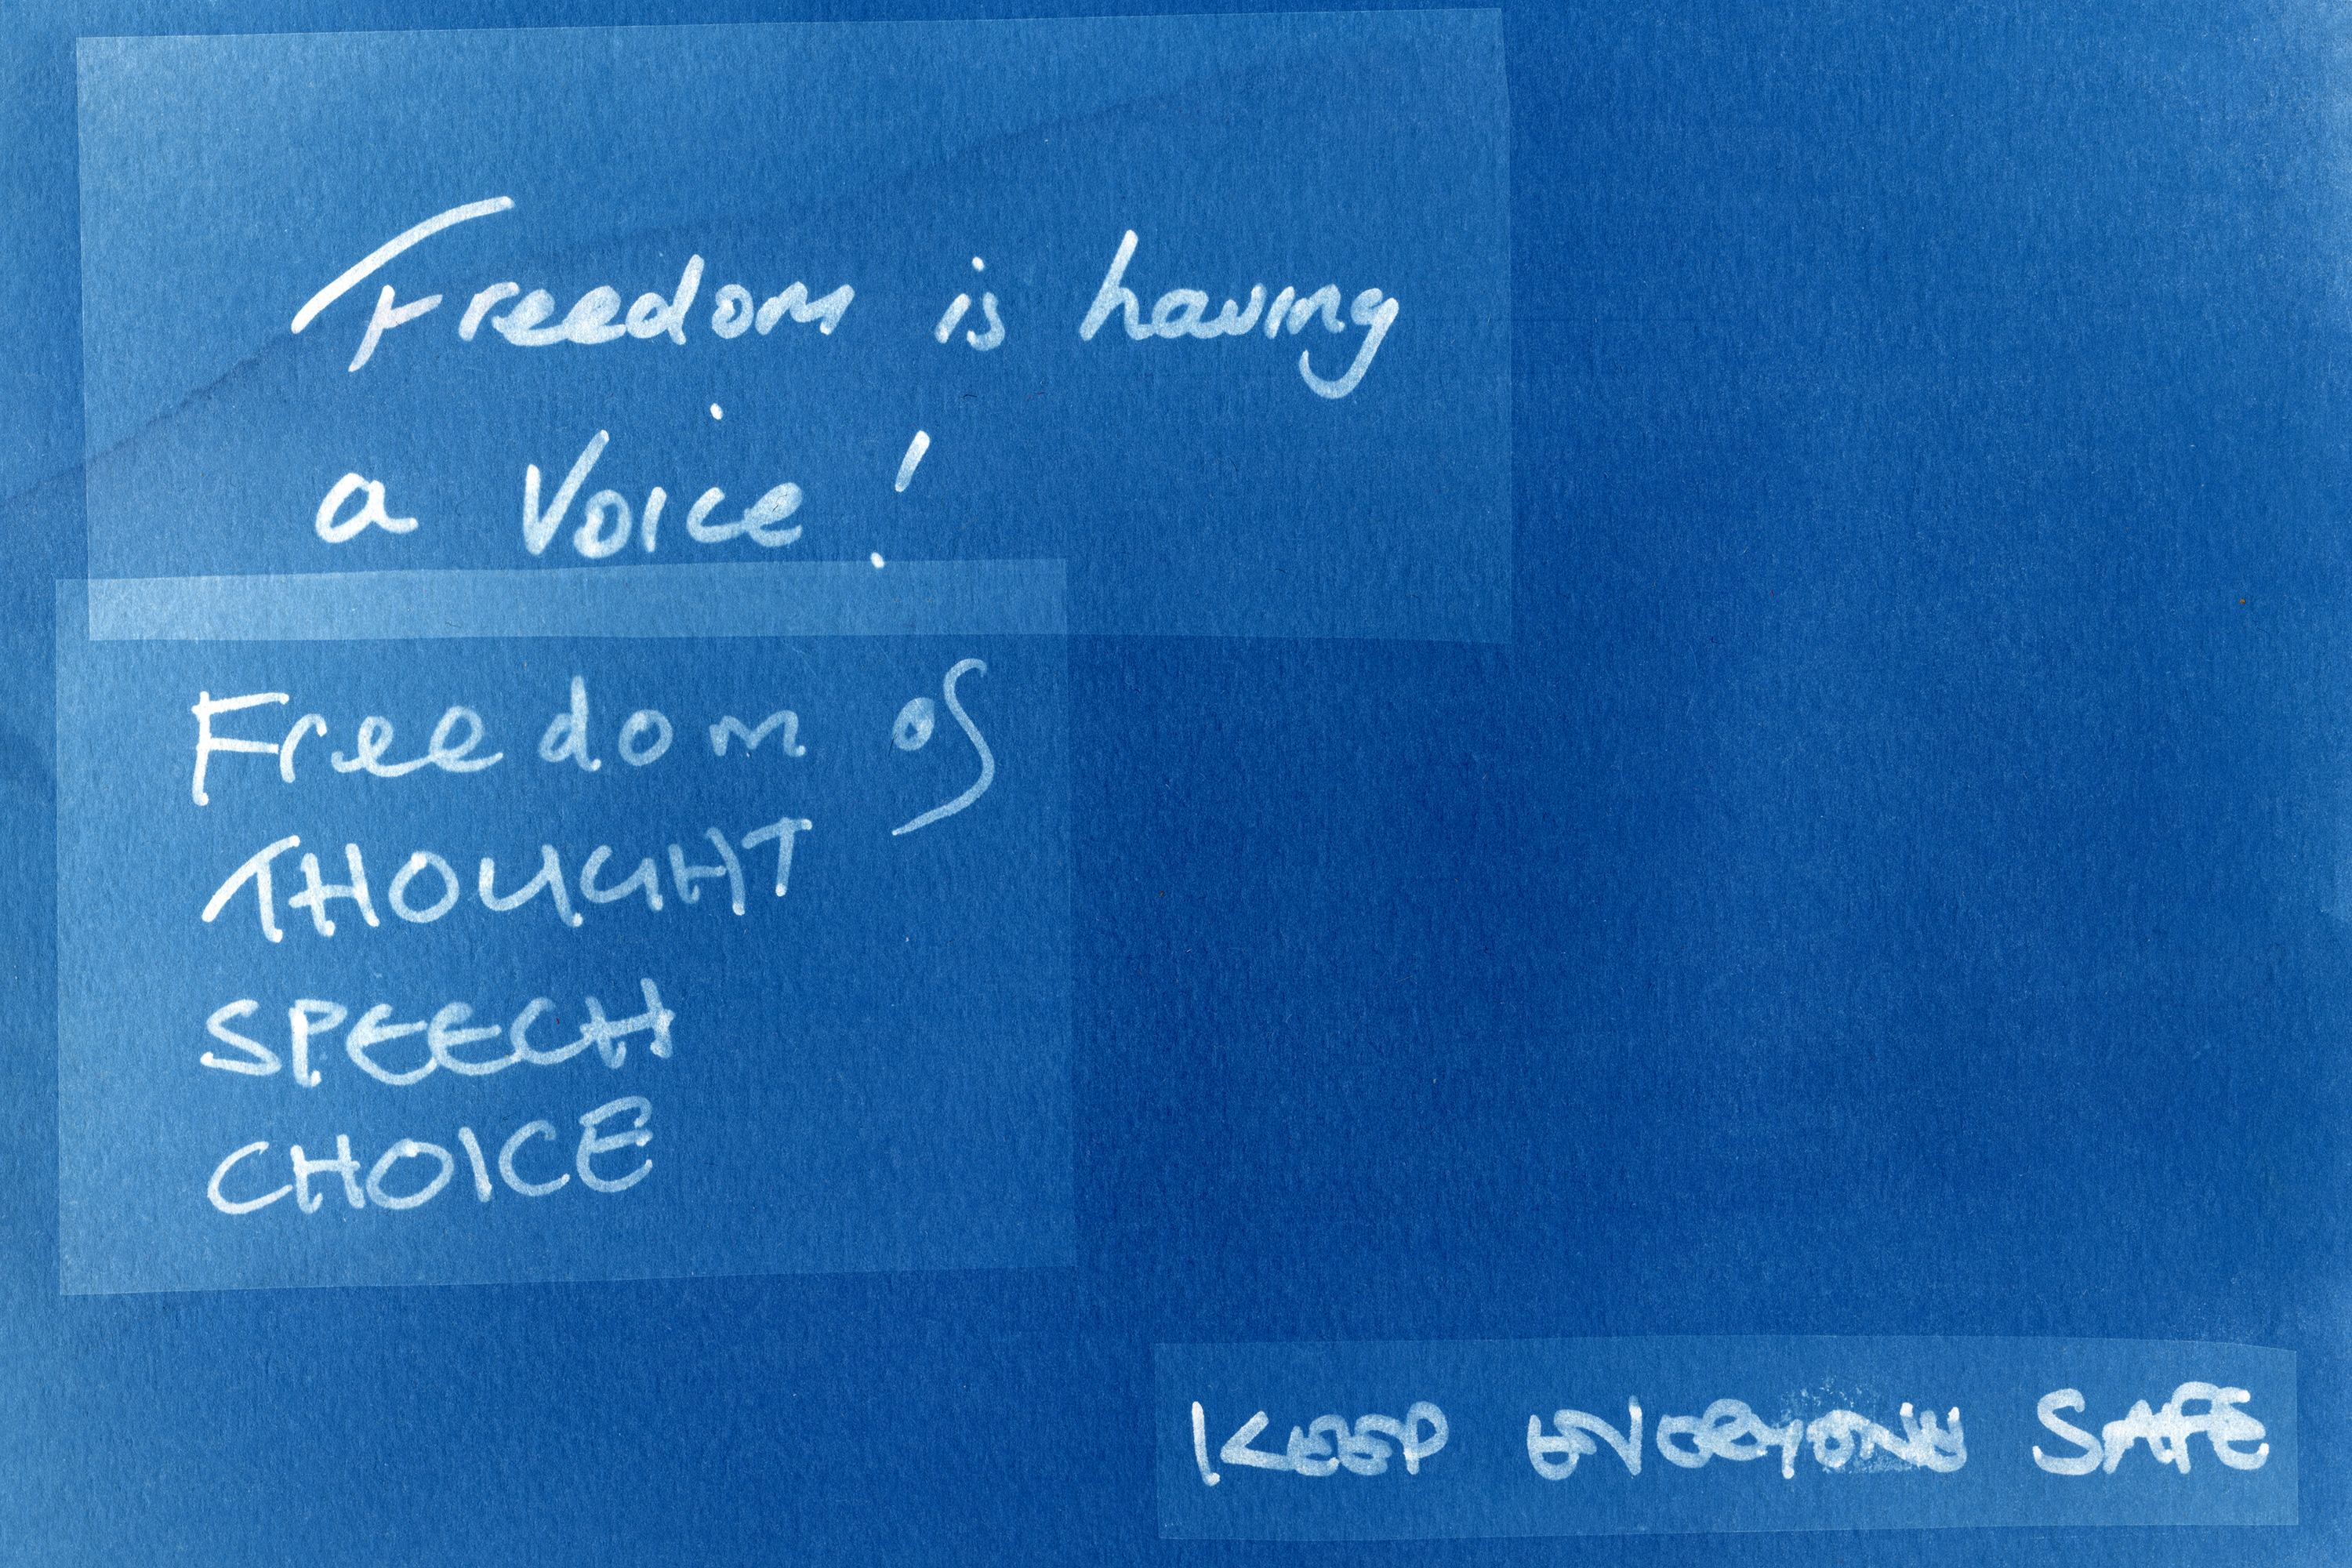 Freedom is having
a Voice!
Freedom of
THOUGHT
SPEECH
CHOICE
KEEP EVERYONE SAFE